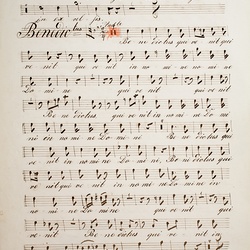 in ex cel sis
Benedictus
Be ne dictus qui ve nit qui
ve nit qui ve nit qui ve nit
Be ne dictus qui ve nit in no mi ne Do
mi ni in no mi ne Do mi ni, Be ne dictus qui
ve nit in no mi ne Do mi ni, Be ne dictus qui
ve nit qui ve nit in no mi ne Do mi ni in
no mi ne Do mi ni qui ve nit qui
ve nit Be ne dictus qui ve nit in